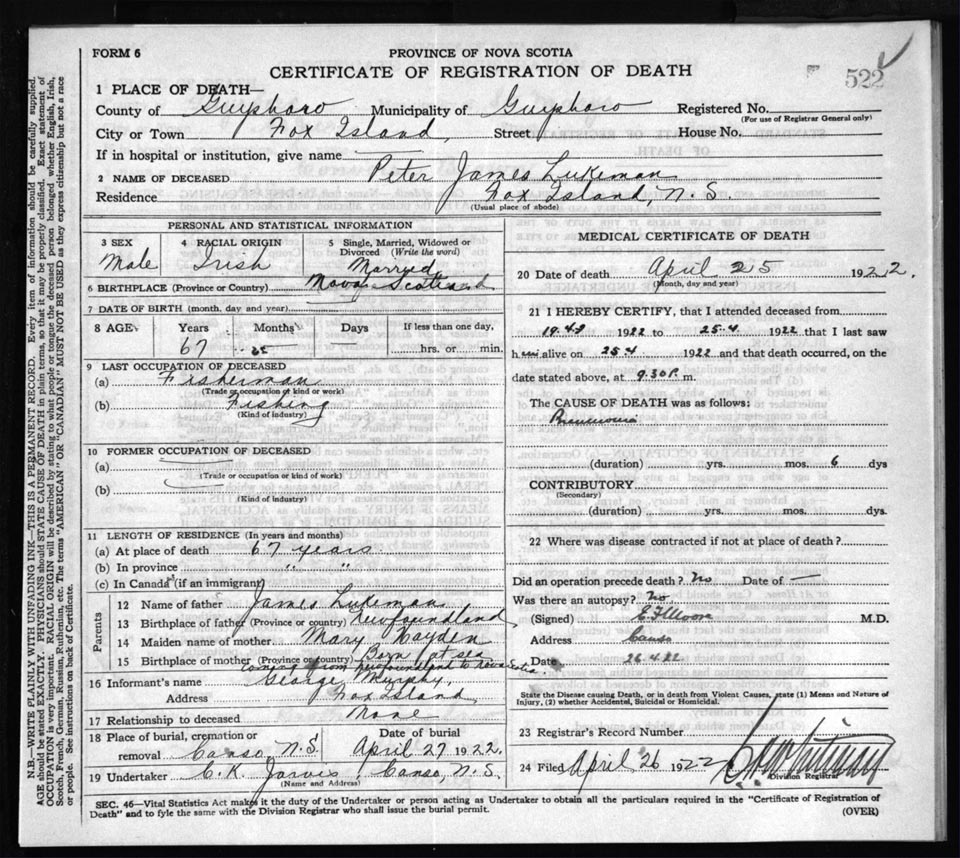 FORM 6
PROVINCE OF NOVA SCOTIA
CERTIFICATE OF REGISTRATION OF DEATH
522
1 PLACE OF DEATH—
County of Guysboro Municipality of Guysboro Registered No.
(For use of Registrar General only)
City or Town Fox Island, Street House No.
If in hospital or institution, give name
2 NAME OF DECEASED Peter James Lukeman
Residence Fox Island, N.S.
(Usual place of abode)
PERSONAL AND STATISTICAL INFORMATION
3 SEX Male
4 RACIAL ORIGIN Irish
5 Single, Married, Widowed or Divorced (Write the word) Married
6 BIRTHPLACE (Province or Country) Nova Scotia
7 DATE OF BIRTH (month, day and year)
8 AGE Years Months Days If less than one day,
67 hrs. or min.
9 LAST OCCUPATION OF DECEASED
(a) Fisherman
(Trade or occupation or kind or work)
(b) Fishing
(Kind of industry)
10 FORMER OCCUPATION OF DECEASED
(a)
(Trade or occupation or kind of work)
(b)
(Kind of industry)
11 LENGTH OF RESIDENCE (In years and months)
(a) At place of death 67 years
(b) In province " "
(c) In Canada (if an immigrant)
Parents
12 Name of father James Lukeman
13 Birthplace of father (Province or country) Newfoundland
14 Maiden name of mother Mary Hayden
15 Birthplace of mother (Province or country) Born at sea
coming from Newfoundlant to Nova Scotia
16 Informant's name George Murphy,
Address Fox Island
17 Relationship to deceased None
18 Place of burial, cremation or removal Canso, N.S. Date of burial April 27 1922.
19 Undertaker C. K. Jarvis, Canso, N.S.
(Name and Address)
MEDICAL CERTIFICATE OF DEATH
20 Date of death April 25 1922.
(Month, day and year)
21 I HEREBY CERTIFY, that I attended deceased from
19.4 1922 to 25.4 1922 that I last saw
him alive on 25.4 1922 and that death occurred, on the
date stated above, at 9.30P. m.
The CAUSE OF DEATH was as follows:
Pneumonia
(duration) yrs. mos. 6 dys
CONTRIBUTORY
(Secondary)
(duration) yrs. mos. dys.
22 Where was disease contracted if not at place of death?
Did an operation precede death? No Date of —
Was there an autopsy? No
(Signed) M.D.
Address Canso
Date 26.4.22
State the Disease causing Death, or in death from Violent Causes, state (1) Means and Nature of
Injury, (2) whether Accidental, Suicidal or Homicidal.
23 Registrar's Record Number
24 Filed April 26 1922
Division Registrar
SEC. 46—Vital Statistics Act makes it the duty of the Undertaker or person acting as Undertaker to obtain all the particulars required in the "Certificate of Registration of
Death" and to fyle the same with the Division Registrar who shall issue the burial permit.
(OVER)
N.B.—WRITE PLAINLY WITH UNFADING INK—THIS IS A PERMANENT RECORD. Every item of information should be carefully supplied.
AGE should be stated EXACTLY. PHYSICIANS should STATE CAUSE OF DEATH in plain terms, that it may be properly classified. Exact statement of
OCCUPATION is very important. RACIAL ORIGIN will be described by stating to what people or tongue the deceased person belonged whether English, Irish,
Scotch, French, German, Russian, Ruthenian, etc. The terms "AMERICAN" OR "CANADIAN" MUST NOT BE USED as they express citizenship but not a race
or people. See instructions on back of Certificate.